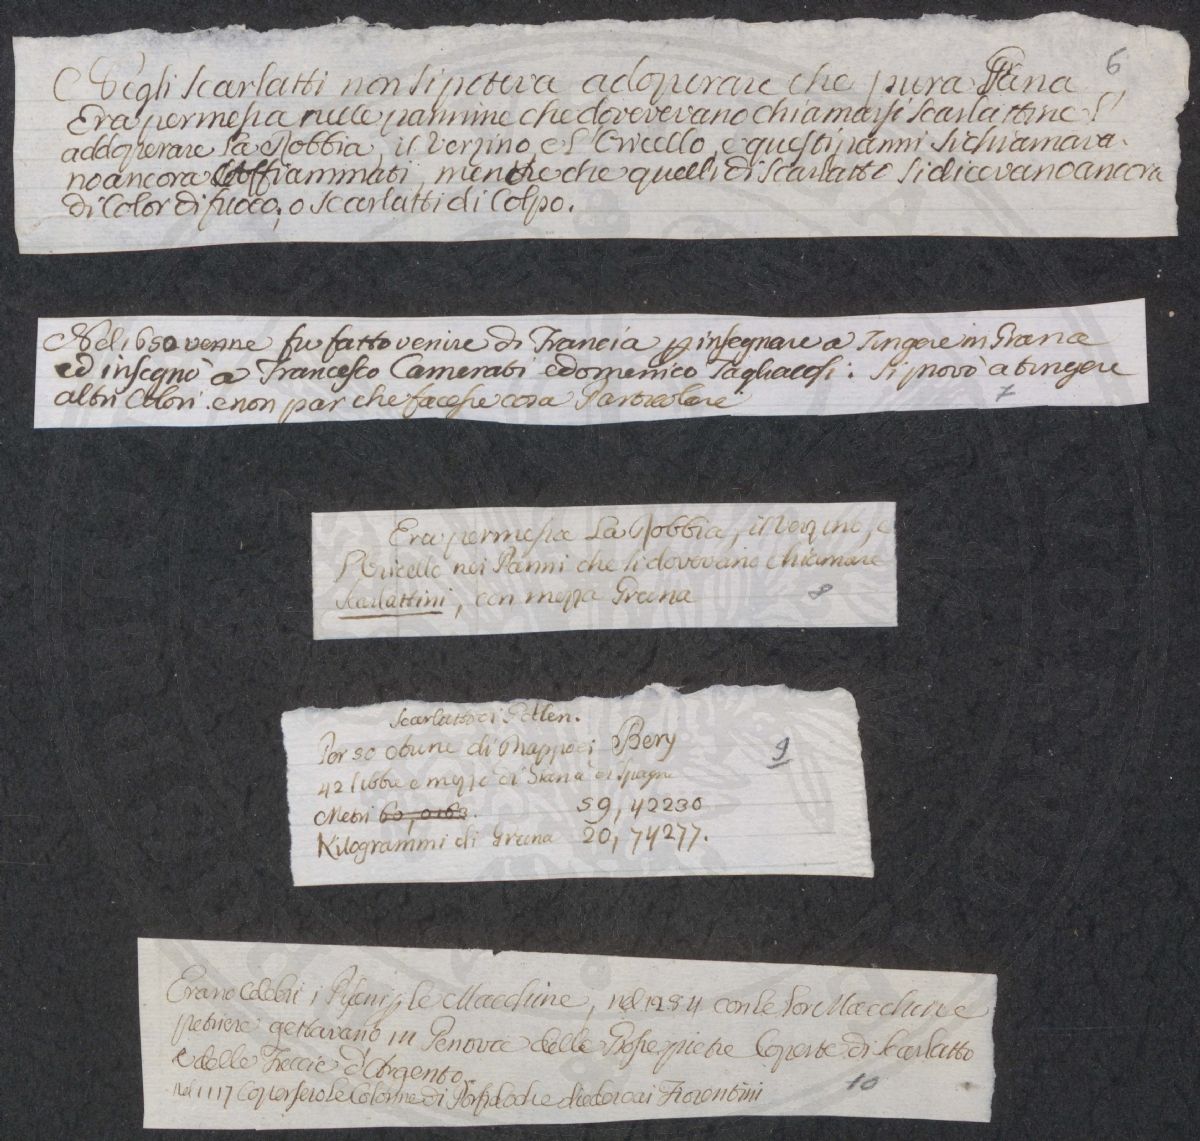 6
Negli Scarlatti non si poteva adoperare che pura Grana
Era permessa nelle pannine che dovevano chiamarsi Scarlattine l'
addoperare la Robbia, il Verzino, e l'Oricello, e questi panni si chiamava-
no ancora Affiammati, mentre che quelli di Scarlatto si dicevano ancora
di Color di fuoco, o Scarlatti di Colpo.
Nel 1650 venne fu fatto venire di Francia p insegnare a Tingere in Grana
ed insegnò a Francesco Camerati e domenico Tagliacosi. Si provò a tingere
altri Colori e non par che facesse cosa Particolare
7
Era permessa la Robbia, il Verzino, e
l'Oricello nei Panni che si dovevano chiamare
Scarlattini, con mezza Grana
8
Scarlatto di
Per 30 di Drappo di
42 libbre e mezze di Grana di Spagna
9
Metri 60,0163. 59,42230
Kilogrammi di Grana 20,74277.
Erano Celebri i Pisani p le Macchine, nel 1284 con le lor Macchine e
petriere gettavano in Genova delle Grosse pietre Coperte di Scarlatto
e delle Freccie d'Argento.
nel 1117 Copersero le Colonne di Porfido che diedero ai Fiorentini
10